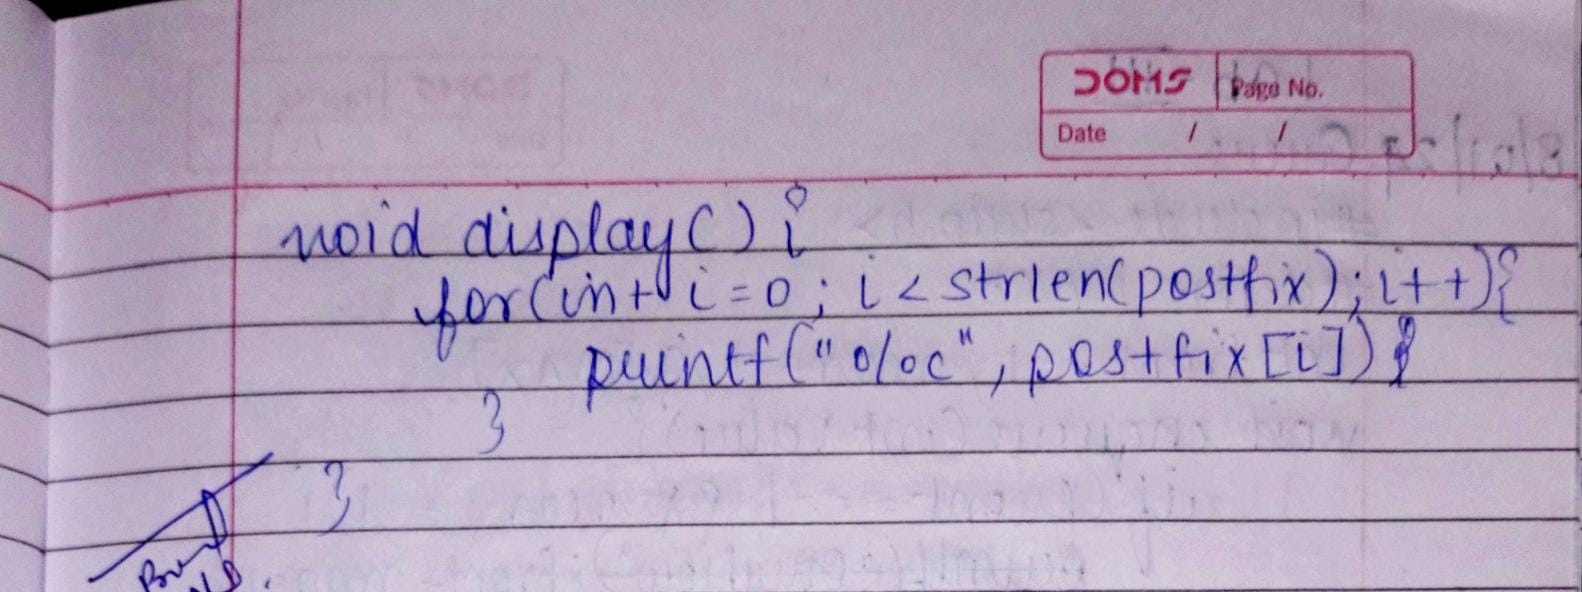 DOMS Page No.
Date / /
void display() {
for(int i=0; i<strlen(postfix); i++){
printf("%c", postfix[i]);
}
}